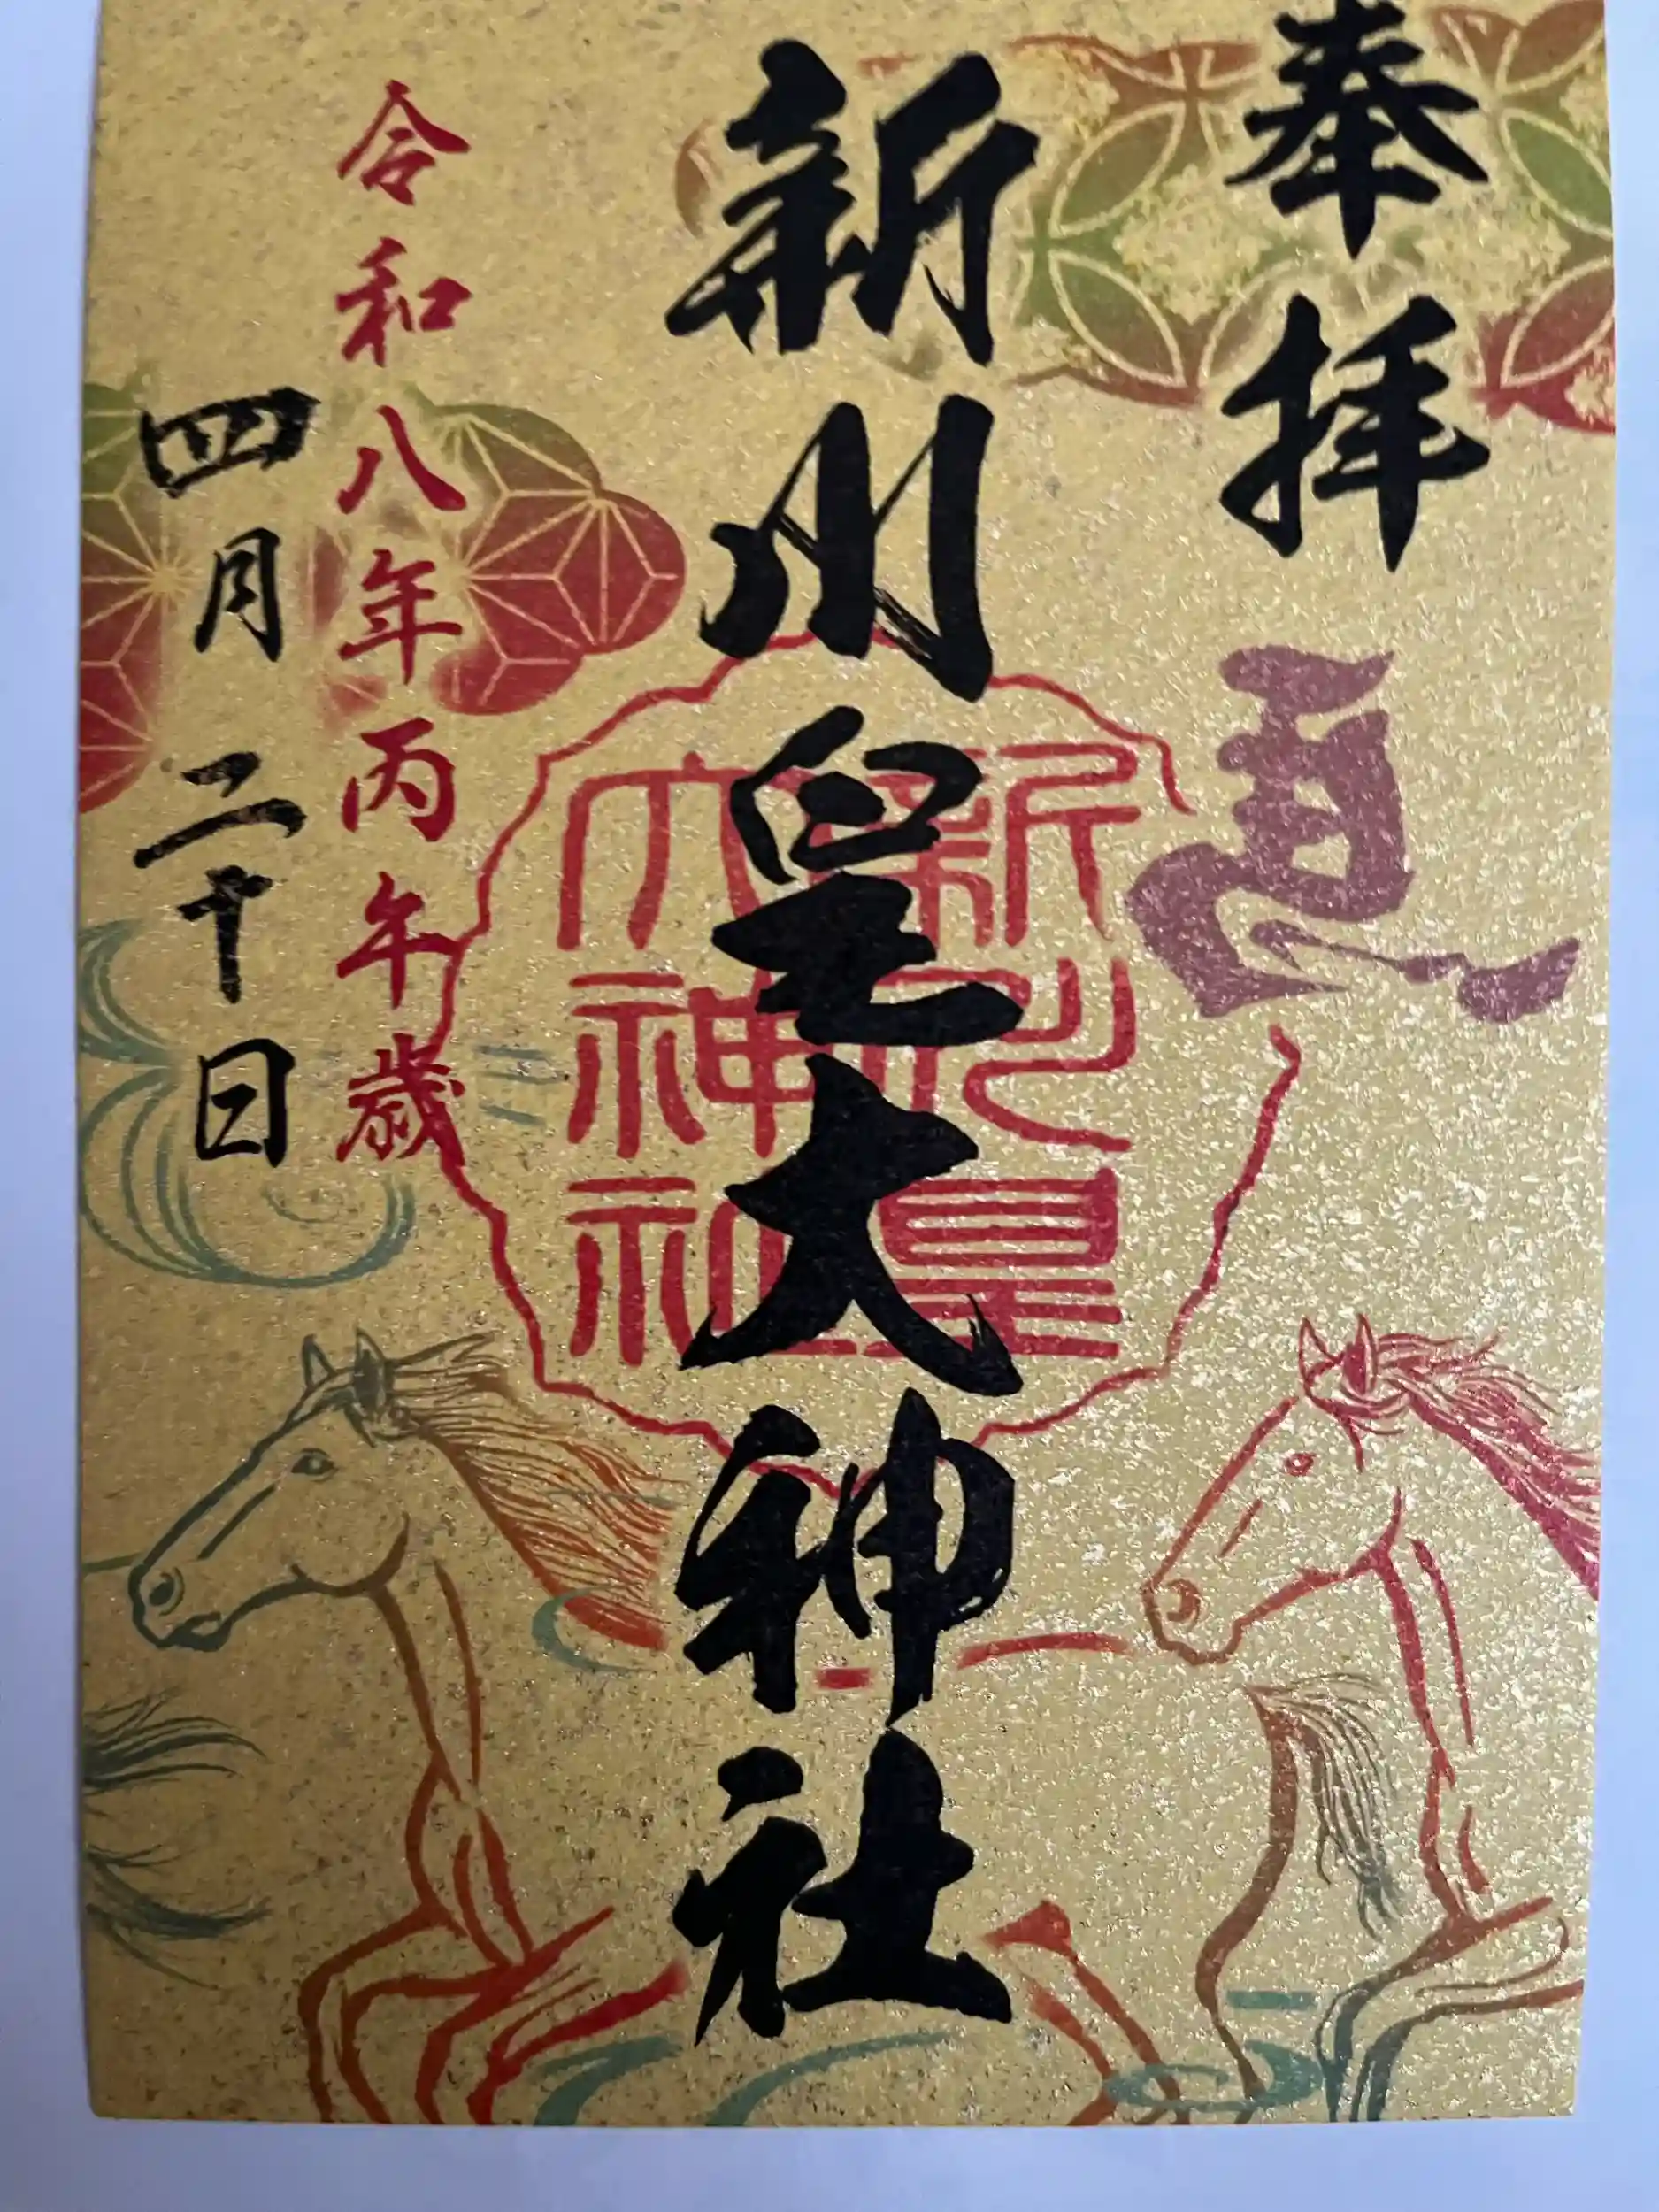 奉拝
新川皇大神社
新川皇
大神社
令和八年丙午歳
四月二十日